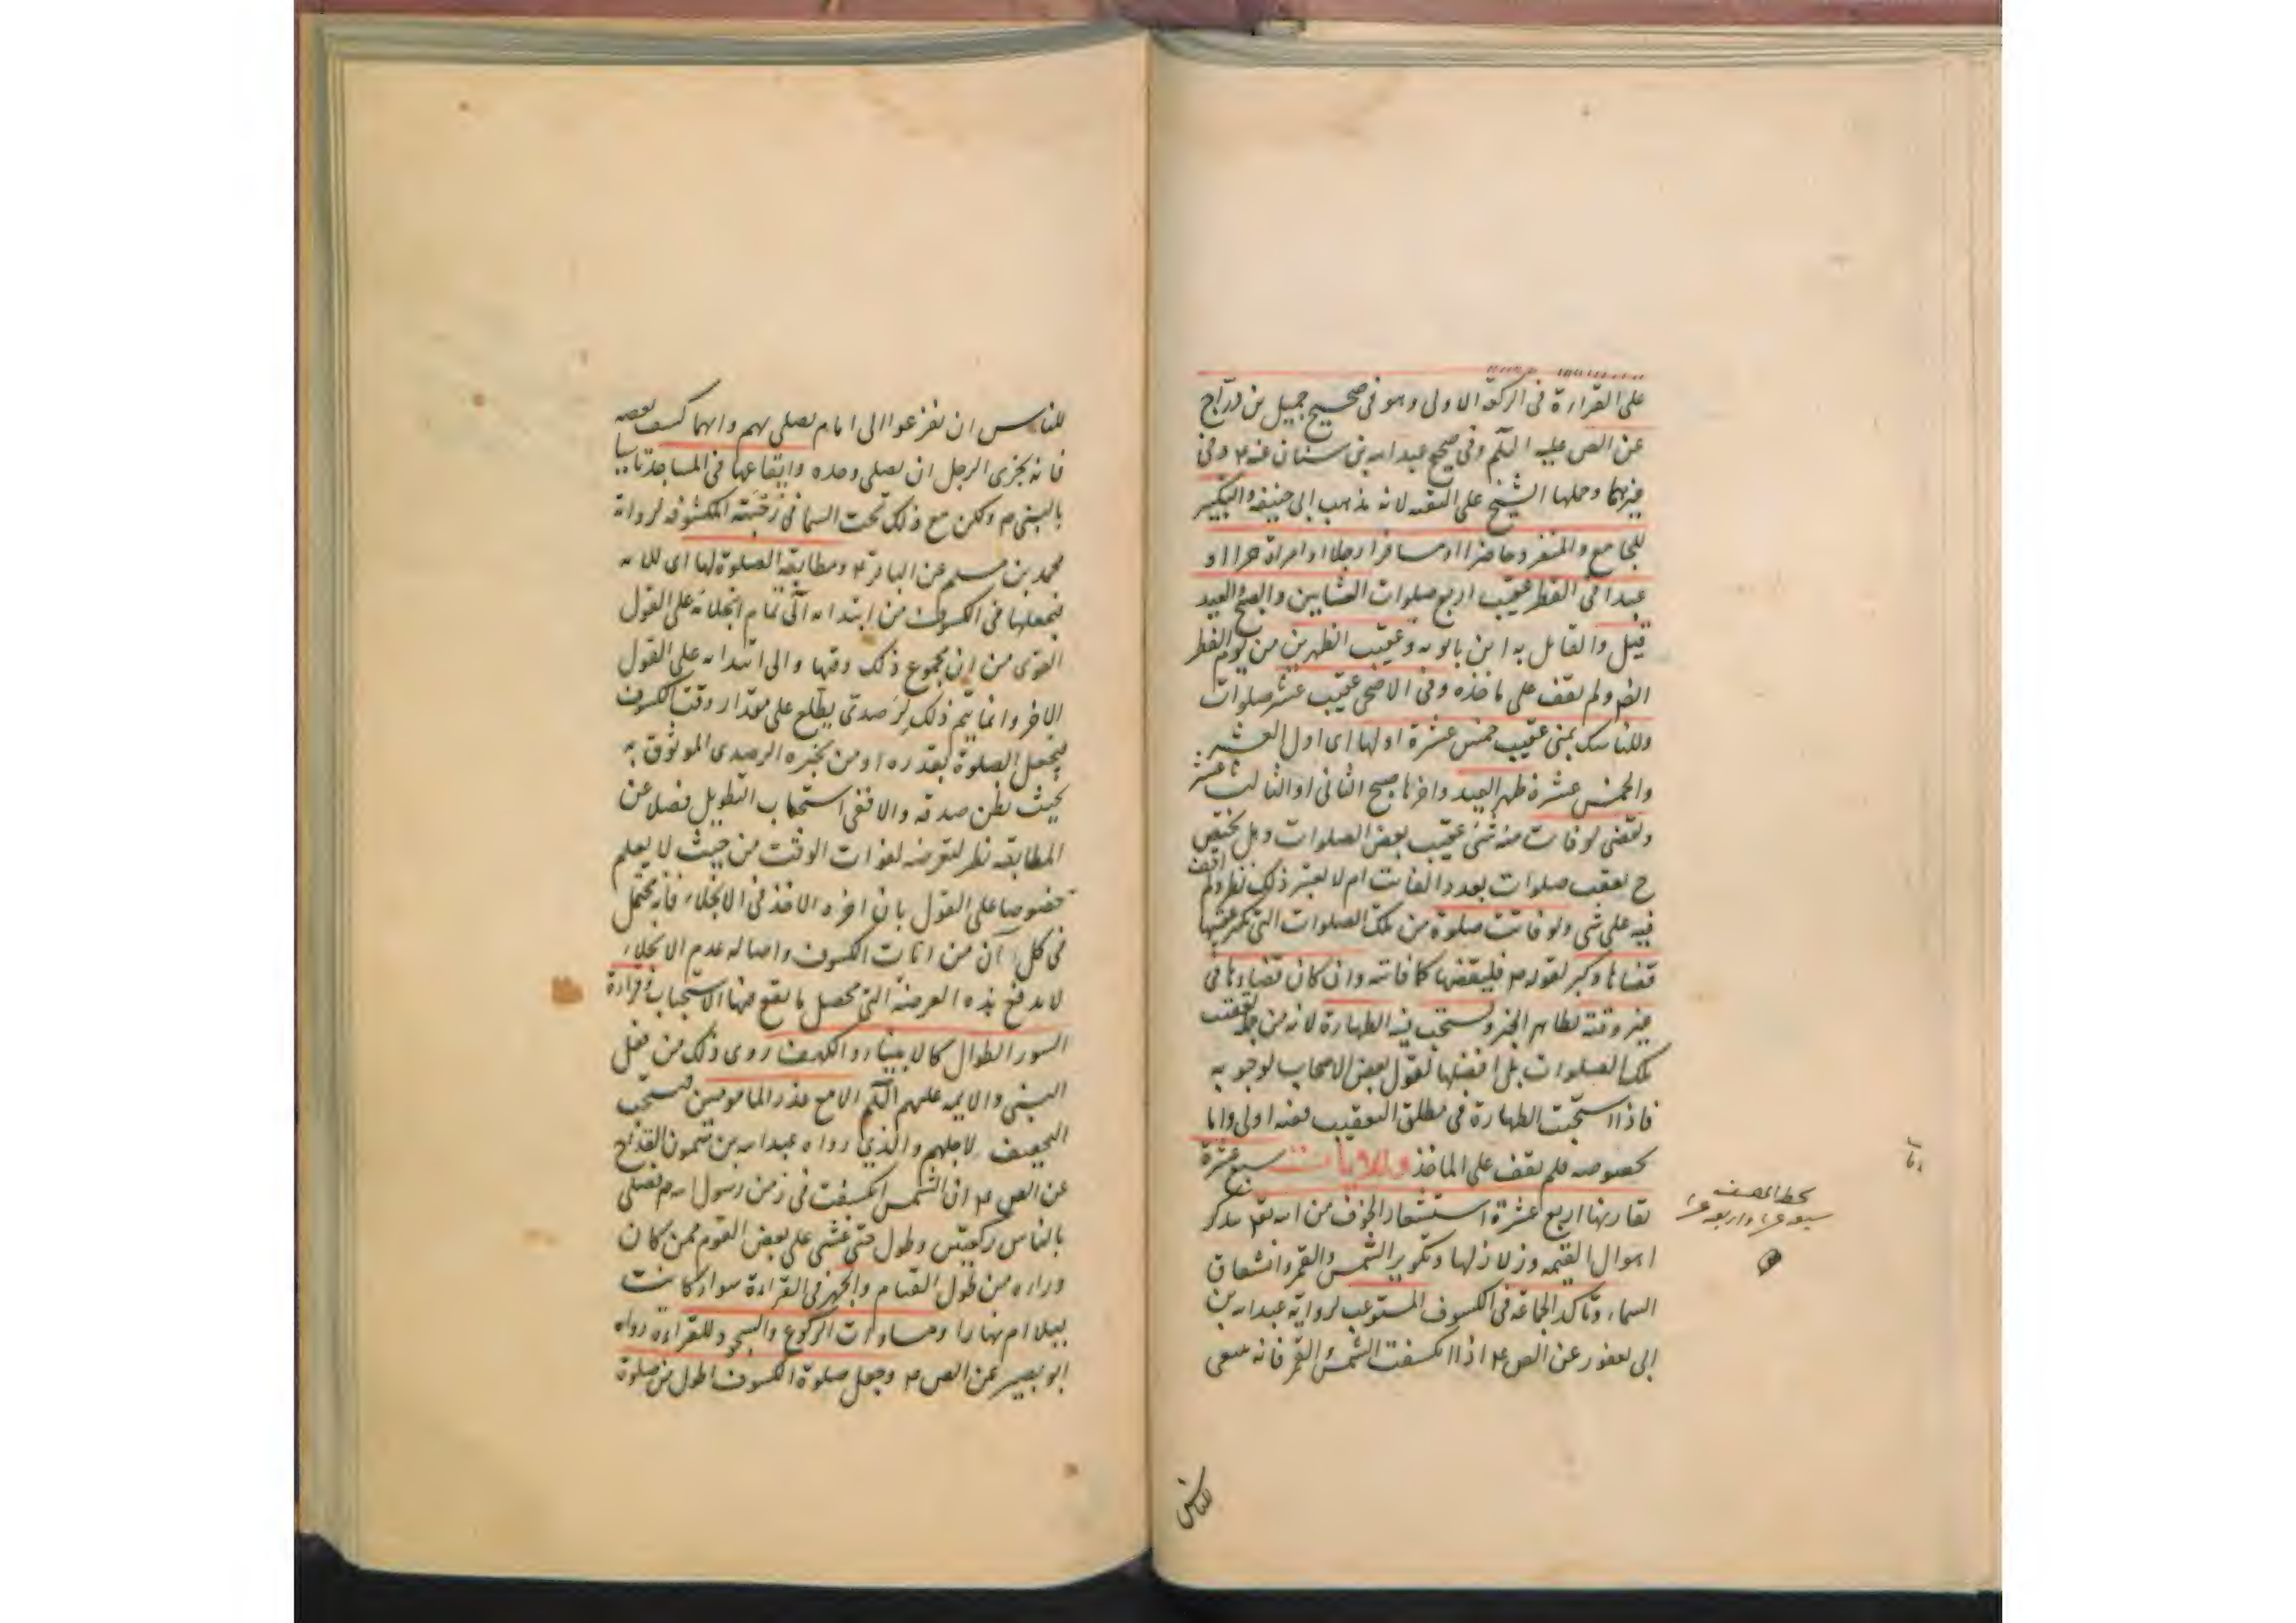 على القراءة فى الركعة الاولى وهو فى صحيح جميل بن درّاج
عن الص عليه السلم وفى صحيح عبد الله بن سنان عنه ع وفى
غيرهما وحملها الشيخ على التقيه لانه مذهب ابى حنيفه والتكبير
للجامع والمنفرد حاضرا او مسافرا رجلا او امراة حرا او
عبدا فى الفطر عقيب اربع صلوات العشايين والصبح والعيد
قيل والقايل به ابن بابويه وعقيب الظهرين من يوم الفطر
ايضا ولم نقف على ماخذه وفى الاضحى عقيب عشر صلوات
وللناسك بمنى عقيب خمس عشرة اولها اى اول العشر
والخمس عشرة ظهر العيد واخرها صبح الثانى او الثالث عشر
ويقضى لو فات منه شئ عقيب بعض الصلوات وهل يختص
ح بعقب صلوات بعدد الفائت ام لا يعتبر ذلك نظر ولم اقف
فيه على شئ ولو فاتت صلوة من تلك الصلوات التى يكبر عقيبها
قضاها وكبر لقوله ع فليقضها كما فاتته وان كان قضاؤها فى
غير وقته لظاهر الخبر ويستحب فيه الطهارة لانه من جملة تعقيب
تلك الصلوات بل افضلها لقول بعض الاصحاب بوجوبه
فاذا استحبت الطهارة فى مطلق التعقيب ففيه اولى واما
بخصوصه فلم نقف على الماخذ وللايات سبع عشرة
تقارنها اربع عشرة استشعار الخوف من الله تع بتذكر
اهوال القيمه وزلازلها وتكوير الشمس والقمر وانشقاق
السماء وتاكد الجماعة فى الكسوف المستوعب لرواية عبد الله بن
ابى يعفور عن الص ع اذا انكسفت الشمس والقمر فانه ينبغى
بخط المصنف
سبعة عشر واربعة عشر
للناس
للناس ان يفزعوا الى امام يصلى بهم وايهما كسف بعضه
فانه يجزى الرجل ان يصلى وحده وايقاعها فى المساجد تاسيا
بالنبى ص وليكن مع ذلك تحت السما فى رحبته المكشوفه لرواية
محمد بن مسلم عن الباقر ع ومطابقة الصلوة لها اى للايه
فيجعلها فى الكسوف من ابتدائه الى تمام انجلائه على القول
القوى من ان مجموع ذلك وقتها والى ابتدائه على القول
الاخر وانما يتم ذلك لرصدى يطلع على مقدار وقت الكسوف
ليجعل الصلوة بقدره او من يخبره الرصدى الموثوق به
بحيث يظن صدقه والا ففى استحباب التطويل فضلا عن
المطابقه نظر لتعرضه لفوات الوقت من حيث لا يعلم
خصوصا على القول بان اخره الاخذ فى الانجلاء فانه يحتمل
فى كل آن من انات الكسوف واصاله عدم الانجلاء
لا يدفع هذه العرضة التى يحصل ما يقع منها الاستحباب وقراءة
السور الطوال كالانبياء والكهف روى ذلك من فعل
النبى والايمه عليهم السلم الا مع عذر المامومين فيستحب
التخفيف لاجلهم والذي رواه عبد الله بن ميمون القداح
عن الص ع ان الشمس انكسفت فى زمن رسول الله ص فصلى
بالناس ركعتين وطول حتى غشى على بعض القوم ممن كان
وراءه من طول القيام والجهر فى القراءة سواء كانت
ليلا ام نهارا ومساوات الركوع والسجود للقراءة رواه
ابو بصير عن الص ع وجعل صلوة الكسوف اطول من صلوة